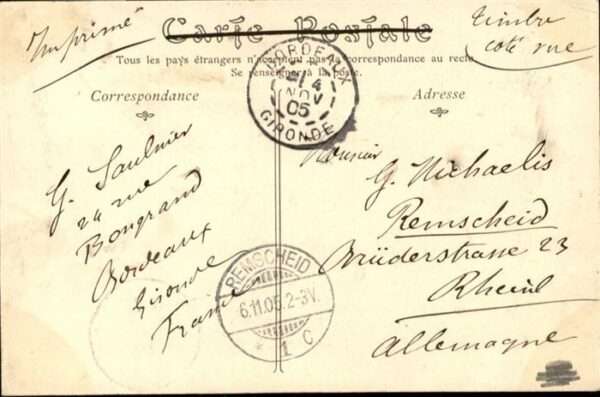 Imprimé
Carte Postale
Timbre
coté vue
Tous les pays étrangers n'acceptent pas la correspondance au recto
Se renseigner à la poste.
Correspondance
Adresse
BORDEAUX
4
NOV
05
GIRONDE
G. Saulnier
24 rue
Bongrand
Bordeaux
Gironde
France
Monsieur
G. Michaelis
Remscheid
Brüderstrasse 23
Rheinl
Allemagne
REMSCHEID
6.11.05.2-3V.
* 1 c